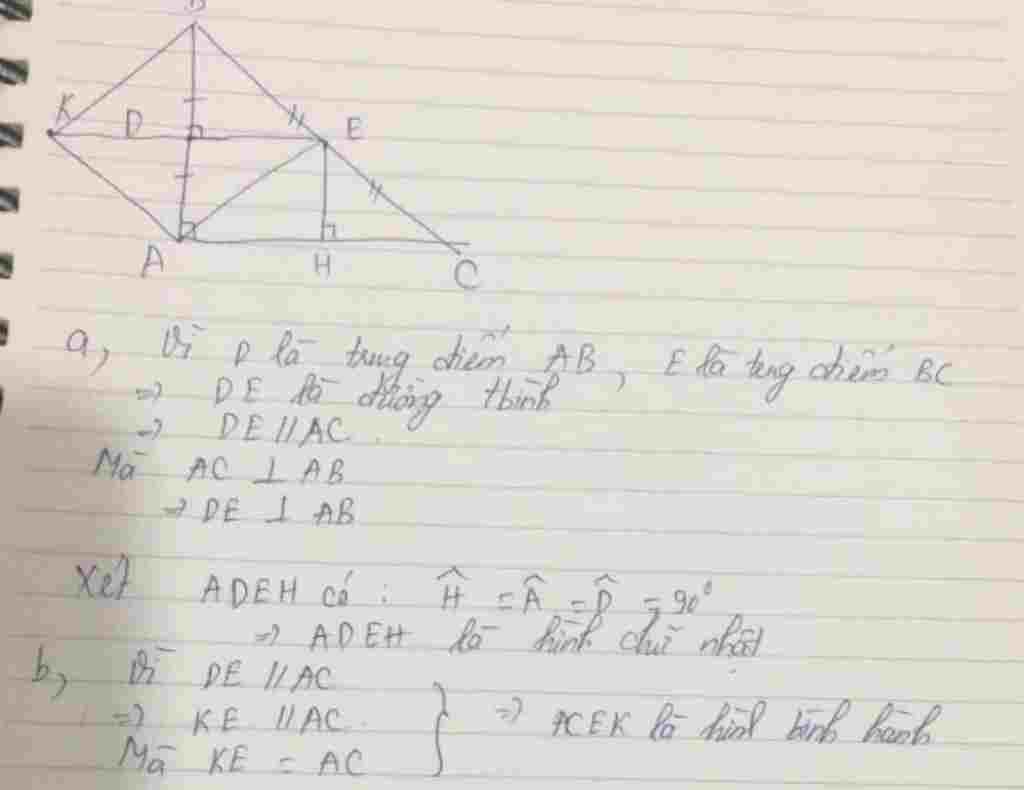 B
K D E
A H C
a, Vì D là trung điểm AB, E là trung điểm BC
=> DE là đường tbình
=> DE // AC.
Mà AC ⊥ AB
=> DE ⊥ AB
Xét ADEH có: Ĥ = Â = D̂ = 90°
=> ADEH là hình chữ nhật
b, Vì DE // AC
=> KE // AC } => ACEK là hình bình hành
Mà KE = AC